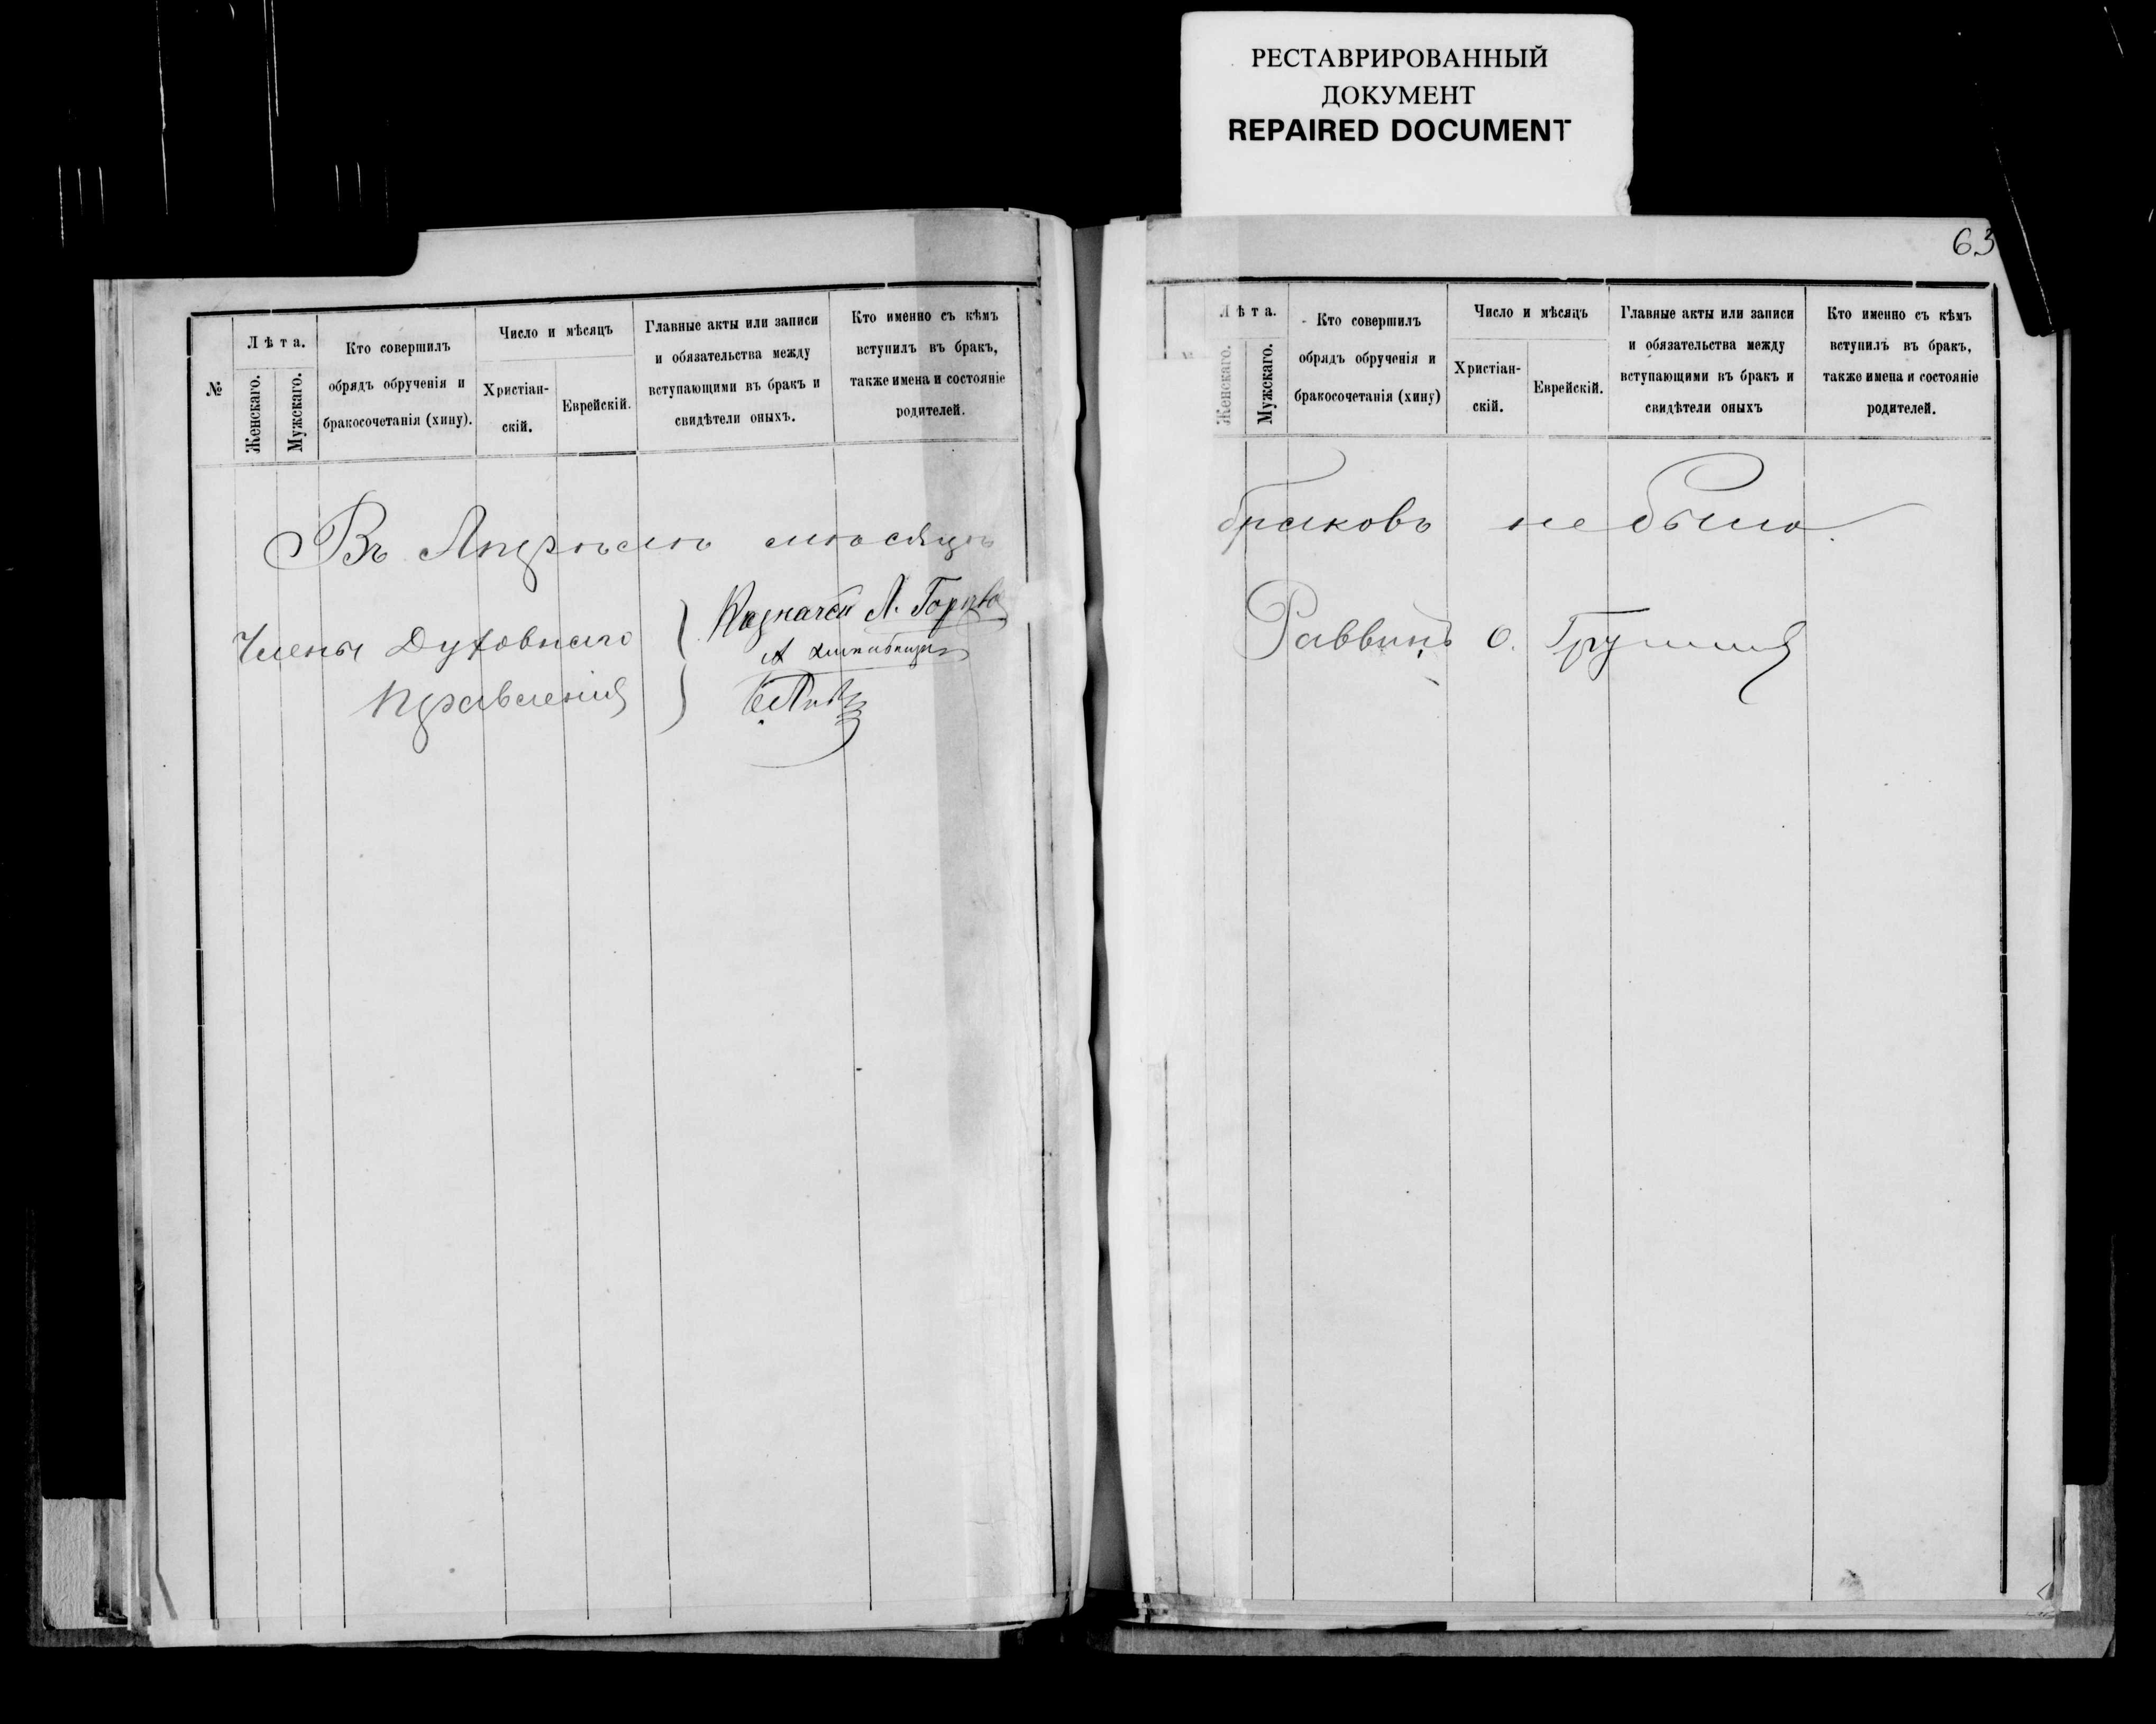 РЕСТАВРИРОВАННЫЙ
ДОКУМЕНТ
REPAIRED DOCUMENT
№
Лѣта.
Женскаго.
Мужскаго.
Кто совершилъ
обрядъ обрученія и
бракосочетанія (хину).
Число и мѣсяцъ
Христіан-
скій.
Еврейскій.
Главные акты или записи
и обязательства между
вступающими въ бракъ и
свидѣтели оныхъ.
Кто именно съ кѣмъ
вступилъ въ бракъ,
также имена и состояніе
родителей.
Въ Апрѣлѣ мѣсяцѣ
Члены Духовнаго
Правленія
Казначей Л.
63
Лѣта.
Женскаго.
Мужскаго.
Кто совершилъ
обрядъ обрученія и
бракосочетанія (хину)
Число и мѣсяцъ
Христіан-
скій.
Еврейскій.
Главные акты или записи
и обязательства между
вступающими въ бракъ и
свидѣтели оныхъ
Кто именно съ кѣмъ
вступилъ въ бракъ,
также имена и состояніе
родителей.
браковъ не было.
Раввинъ О.